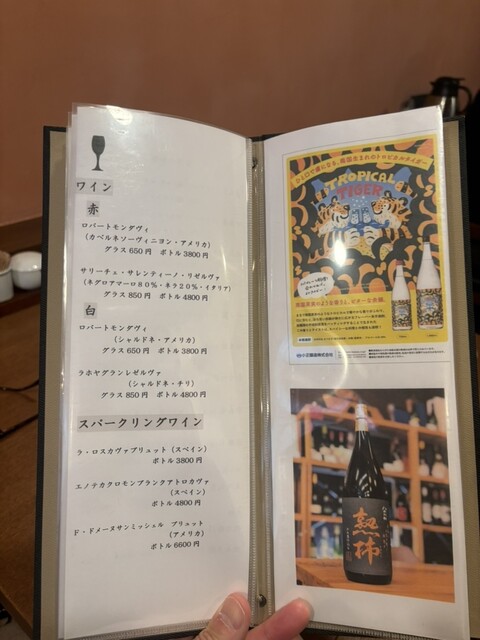 ワイン
赤
ロバートモンダヴィ
(カベルネソーヴィニヨン・アメリカ)
グラス 650 円 ボトル 3800 円
サリーチェ・サレンティーノ・リゼルヴァ
(ネグロアマーロ80%・ネラ20%・イタリア)
グラス 850 円 ボトル 4800 円
白
ロバートモンダヴィ
(シャルドネ・アメリカ)
グラス 650 円 ボトル 3800 円
ラホヤグランレゼルヴァ
(シャルドネ・チリ)
グラス 850 円 ボトル 4800 円
スパークリングワイン
ラ・ロスカヴァブリュット (スペイン)
ボトル 3800 円
エノテカクロモンブランクアトロカヴァ
(スペイン)
ボトル 4800 円
ド・ドメーヌサンミッシェル ブリュット
(アメリカ)
ボトル 6600 円
ひと口で虜になる、南国生まれのトロピカルタイガー
TROPICAL
TIGER
小正醸造株式会社
熟柿